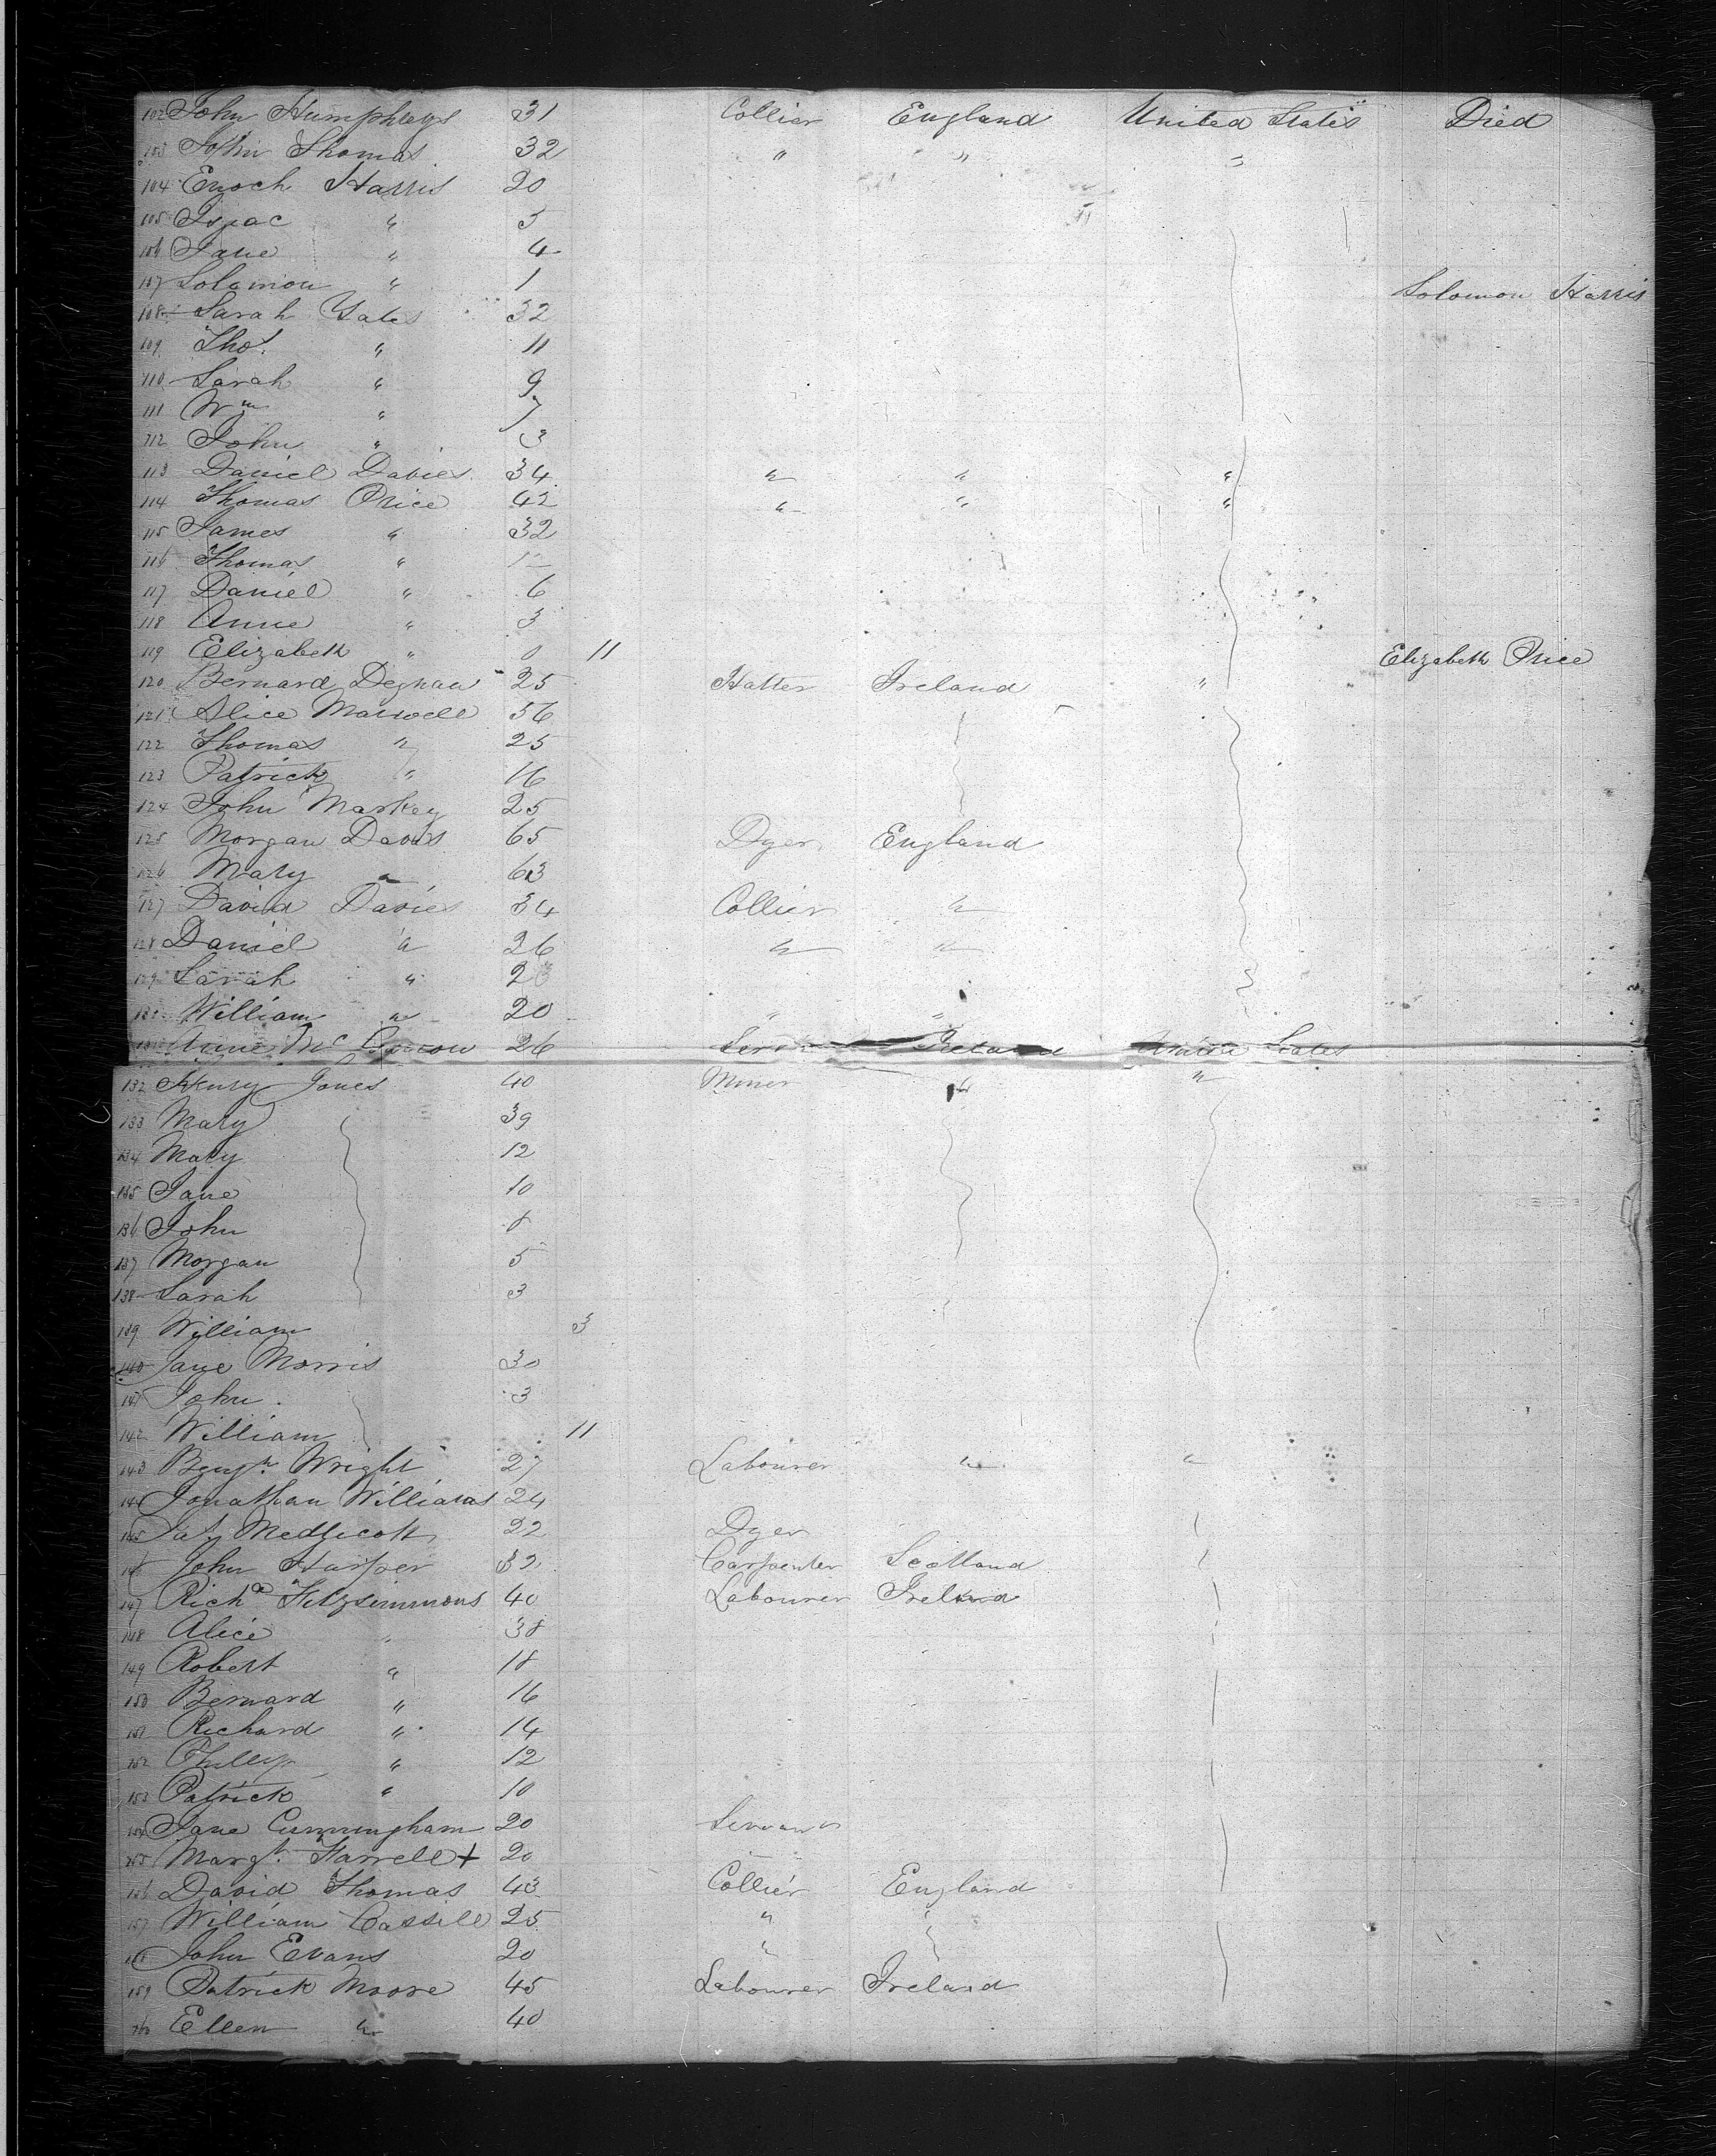 102 John Humphreys 31 Collier England United States Died
103 John Thomas 32 " " "
104 Enoch Harris 20
105 Isaac " 5
106 Jane " 4
107 Solomon " 1 Solomon Harris
108 Sarah Yates 32
109 Thos. " 11
110 Sarah " 9
111 Wm " 7
112 John " 3
113 Daniel Davies 34 " " "
114 Thomas Price 42 " " "
115 James " 32
116 Thomas "
117 Daniel " 6
118 Anne " 3
119 Elizabeth " 0 11 Elizabeth Price
120 Bernard Degnan 25 Hatter Ireland "
121 Alice Maxwell 36
122 Thomas " 25
123 Patrick " 16
124 John Markey 25
125 Morgan Davis 65 Dyer England
126 Mary " 63
127 David Davies 34 Collier "
128 Daniel " 26 " "
129 Sarah "
130 William " 20 " "
131 Anne Mc 26 Ireland United States
132 Henry Jones 40 Miner " "
133 Mary 39
134 Mary 12
135 Jane 10
136 John 8
137 Morgan 5
138 Sarah 3
139 William 3
140 Jane Morris 30
141 John 3
142 William 11
143 Benjn. Wright 27 Labourer " "
144 Jonathan Williams 24
145 Jas Medlicott 22 Dyer
146 John Harper 32 Carpenter Scotland
147 Richd Fitzsimmons 40 Labourer Ireland
148 Alice " 38
149 Robert " 18
150 Bernard " 16
151 Richard " 14
152 Phillip " 12
153 Patrick " 10
154 Jane Cunningham 20 Servant
155 Margt. Farrell + 20
156 David Thomas 43 Collier England
157 William Cassill 25 "
158 John Evans 20 "
159 Patrick Moore 45 Labourer Ireland
160 Ellen " 40